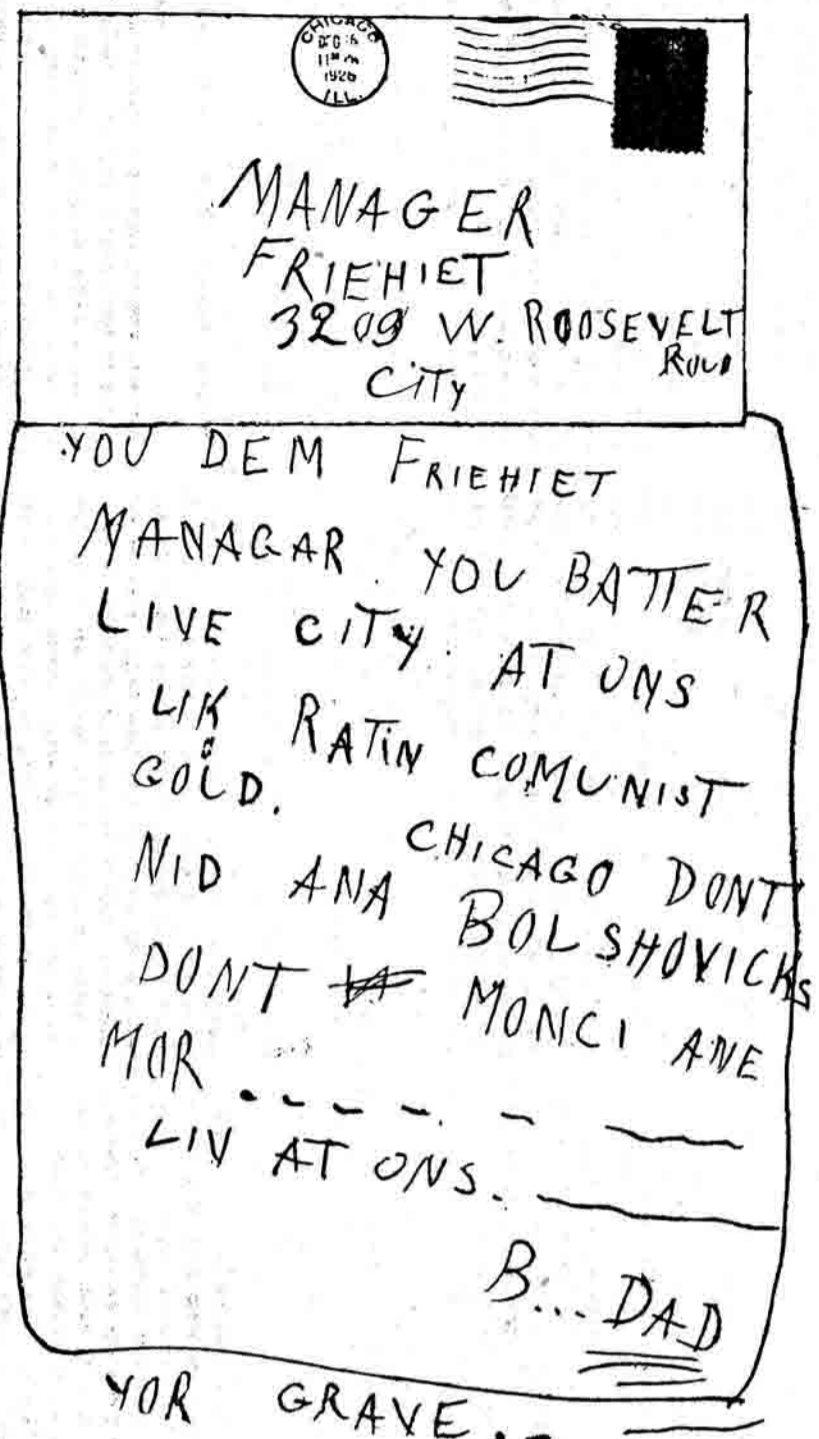 CHICAGO
DEC 16
11 PM
1926
ILL.
MANAGER
FRIEHIET
3209 W. ROOSEVELT
CITY
YOU DEM FRIEHIET
MANAGAR. YOU BATTER
LIVE CITY. AT ONS
LIK RATIN COMUNIST
GOLD.
CHICAGO DONT
NID ANA BOLSHOVICKS
DONT MONCI ANE
MOR . - - - - —
LIV AT ONS. —
B... DAD
YOR GRAVE. - —